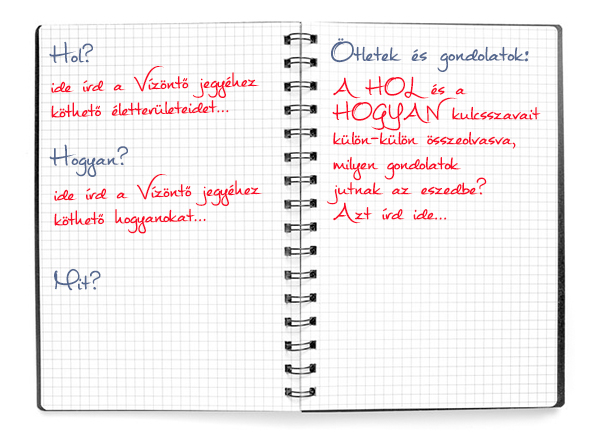 Hol?
ide írd a Vízöntő jegyéhez
köthető életterületeidet...
Hogyan?
ide írd a Vízöntő jegyéhez
köthető hogyanokat...
Mit?
Ötletek és gondolatok:
A HOL és a
HOGYAN kulcsszavait
külön-külön összeolvasva,
milyen gondolatok
jutnak az eszedbe?
Azt írd ide...